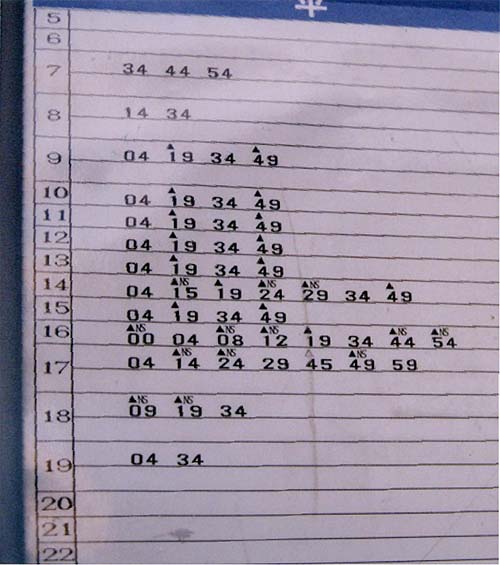 平
5
6
7 34 44 54
8 14 34
9 04 ▲19 34 ▲49
10 04 ▲19 34 ▲49
11 04 ▲19 34 ▲49
12 04 ▲19 34 ▲49
13 04 ▲19 34 ▲49
14 04 ▲NS15 ▲19 ▲NS24 ▲NS29 34 ▲49
15 04 ▲19 34 ▲49
16 ▲NS00 04 ▲NS08 ▲NS12 ▲19 34 ▲NS44 ▲NS54
17 04 ▲NS14 ▲NS24 29 △45 ▲NS49 59
18 ▲NS09 ▲NS19 34
19 04 34
20
21
22